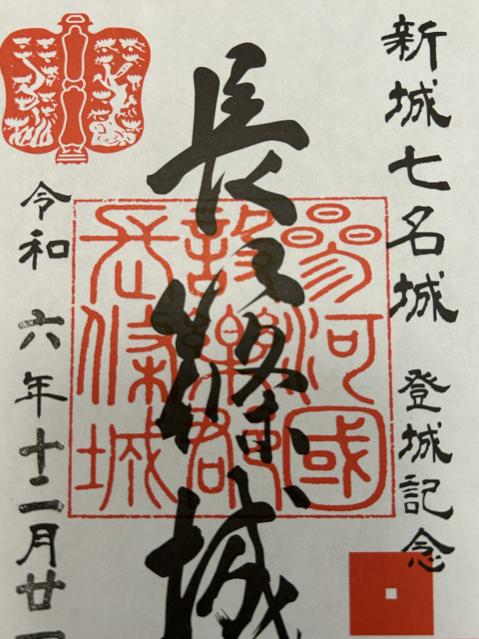 新城七名城 登城記念
長篠城
參河國
設樂郡
長篠城
令和 六年十二月廿